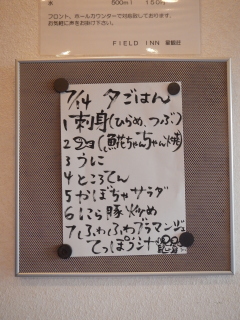 水 500ml 150円
フロント、ホールカウンターで対応致しております。
お気軽に声をお掛け下さい。
FIELD INN
7/14 夕ごはん
1 刺身(ひらめ、つぶ)
2 (魚花ちゃんちゃん焼)
3 うに
4 ところてん
5 かぼちゃサラダ
6 にら豚炒め
7 ふわふわブラマンジェ
てっぽう汁